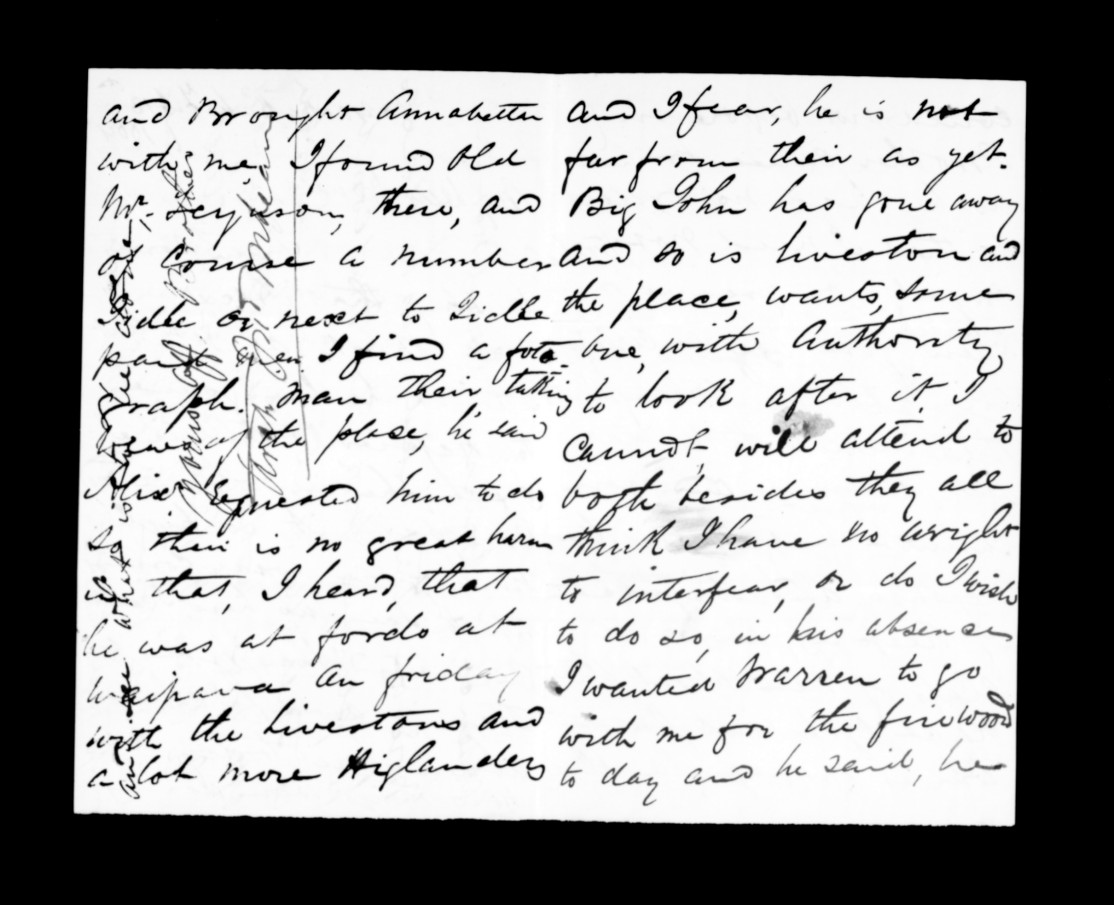 and Brought Annabella
with me, I found Old
Mr. Ferguson, there, and
of Course a number
Tidle or next to Tidle
I find a foto
graph. man their taking
views of the place, he said
Alixr requested him to do
so their is no great harm
in that, I heard, that
he was at fords at
waipava an friday
with the Livestons and
a lot more Higlanders
and I fear, he is not
far from their as yet.
Big John has gone away
and so is Liveston and
the place, wants, some
one, with Authority,
to look after it, I
Cannot, will attend to
both besides they all
think I have no wright
to interfear, or do I wish
to do so, in his absense
I wanted Warren to go
with me for the firewood
to day and he said, he
your Brother
John McLean